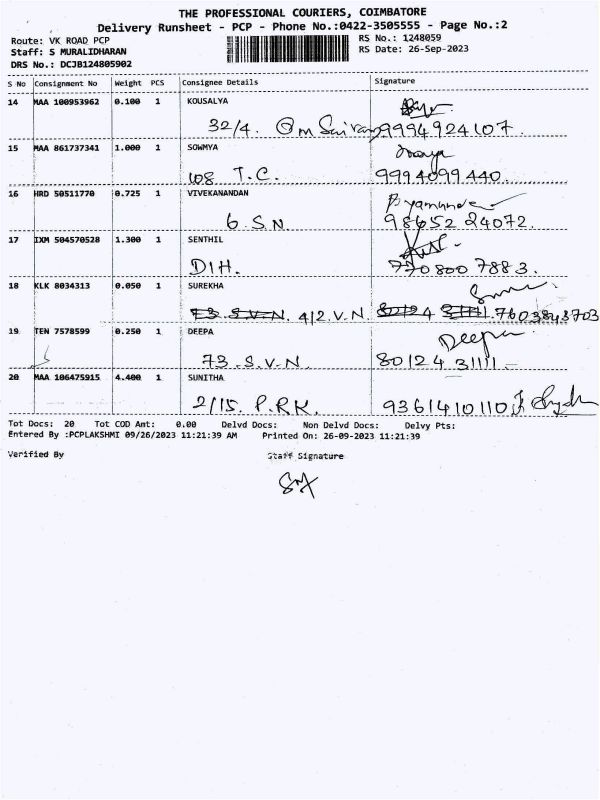 THE PROFESSIONAL COURIERS, COIMBATORE
Delivery Runsheet - PCP - Phone No.:0422-3505555 - Page No.:2
Route: VK ROAD PCP RS No.: 1248059
Staff: S MURALIDHARAN RS Date: 26-Sep-2023
DRS No.: DCJB124805902
S No Consignment No Weight PCS Consignee Details Signature
14 MAA 100953962 0.100 1 KOUSALYA
32/4. Om Sairam 9994924107.
15 MAA 861737341 1.000 1 SOWMYA
108 T.C. 9994099440.
16 HRD 50511770 0.725 1 VIVEKANANDAN
6 S.N. 98652 24072.
17 IXM 504570528 1.300 1 SENTHIL
D1H. 770800 7883.
18 KLK 8034313 0.050 1 SUREKHA
73. S.V.N. 412.V.N. 80124 31111. 7603843703
19 TEN 7578599 0.250 1 DEEPA Deepa
73. S.V.N. 80124 31111
20 MAA 106475915 4.400 1 SUNITHA
2/15. P.R.K. 9361410110
Tot Docs: 20 Tot COD Amt: 0.00 Delvd Docs: Non Delvd Docs: Delvy Pts:
Entered By :PCPLAKSHMI 09/26/2023 11:21:39 AM Printed On: 26-09-2023 11:21:39
Verified By Staff Signature